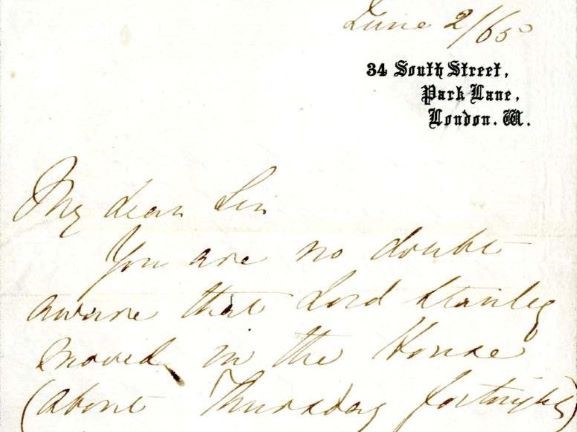 June 2/65
34 South Street,
Park Lane,
London. W.
My dear Sir
You are no doubt
aware that Lord Stanley
moved in the House
(about Thursday fortnight)